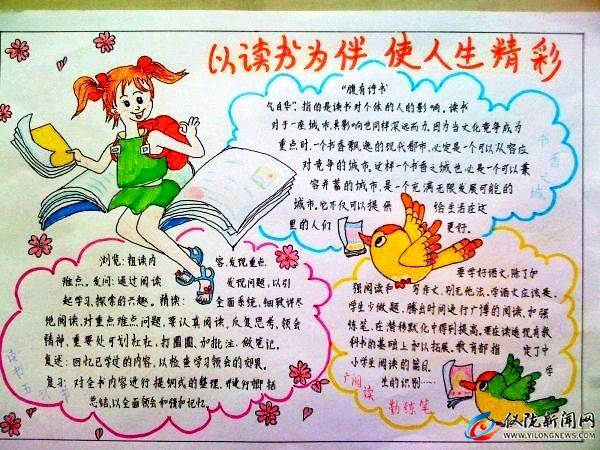 以读书为伴 使人生精彩
"腹有诗书
气自华",指的是读书对个体的人的影响。读书
对于一座城市,其影响也同样深远而力。因为当文化竞争成为
重点时,一个书香飘逸的现代都市,必定是一个可以从容应
对竞争的城市。这样一个书香之城也必是一个可以兼
容并蓄的城市,是一个充满无限发展可能的
城市。它不仅可以提供 给生活在这
里的人们 更好。
书香之城
浏览:粗读内 容,发现重点
难点。发问:通过阅读 发现问题,以引
起学习、探索的兴趣。精读: 全面系统、细致详尽
地阅读,对重点难点问题,要认真阅读,反复思考,领会
精神,重要处可划杠杠,打圈圈,加批注,做笔记。
复述:回忆已学过的内容,以检查学习领会的效果。
复习:对全书内容进行提纲式的整理,并进行概括
总结,以全面领会和强加记忆。
读书五环节
要学好语文,除了加
强阅读和 写作文,别无他法。学语文应该是,
学生少做题,腾出时间进行广博的阅读,加强
练笔,在潜移默化中得到提高。要在读透现有教
科书的基础上加以拓展。教育部指 定了中
小学生阅读的篇目。 学
生的识别……
广阅读
勤练笔
仪陇新闻网
WWW.YILONGNEWS.COM